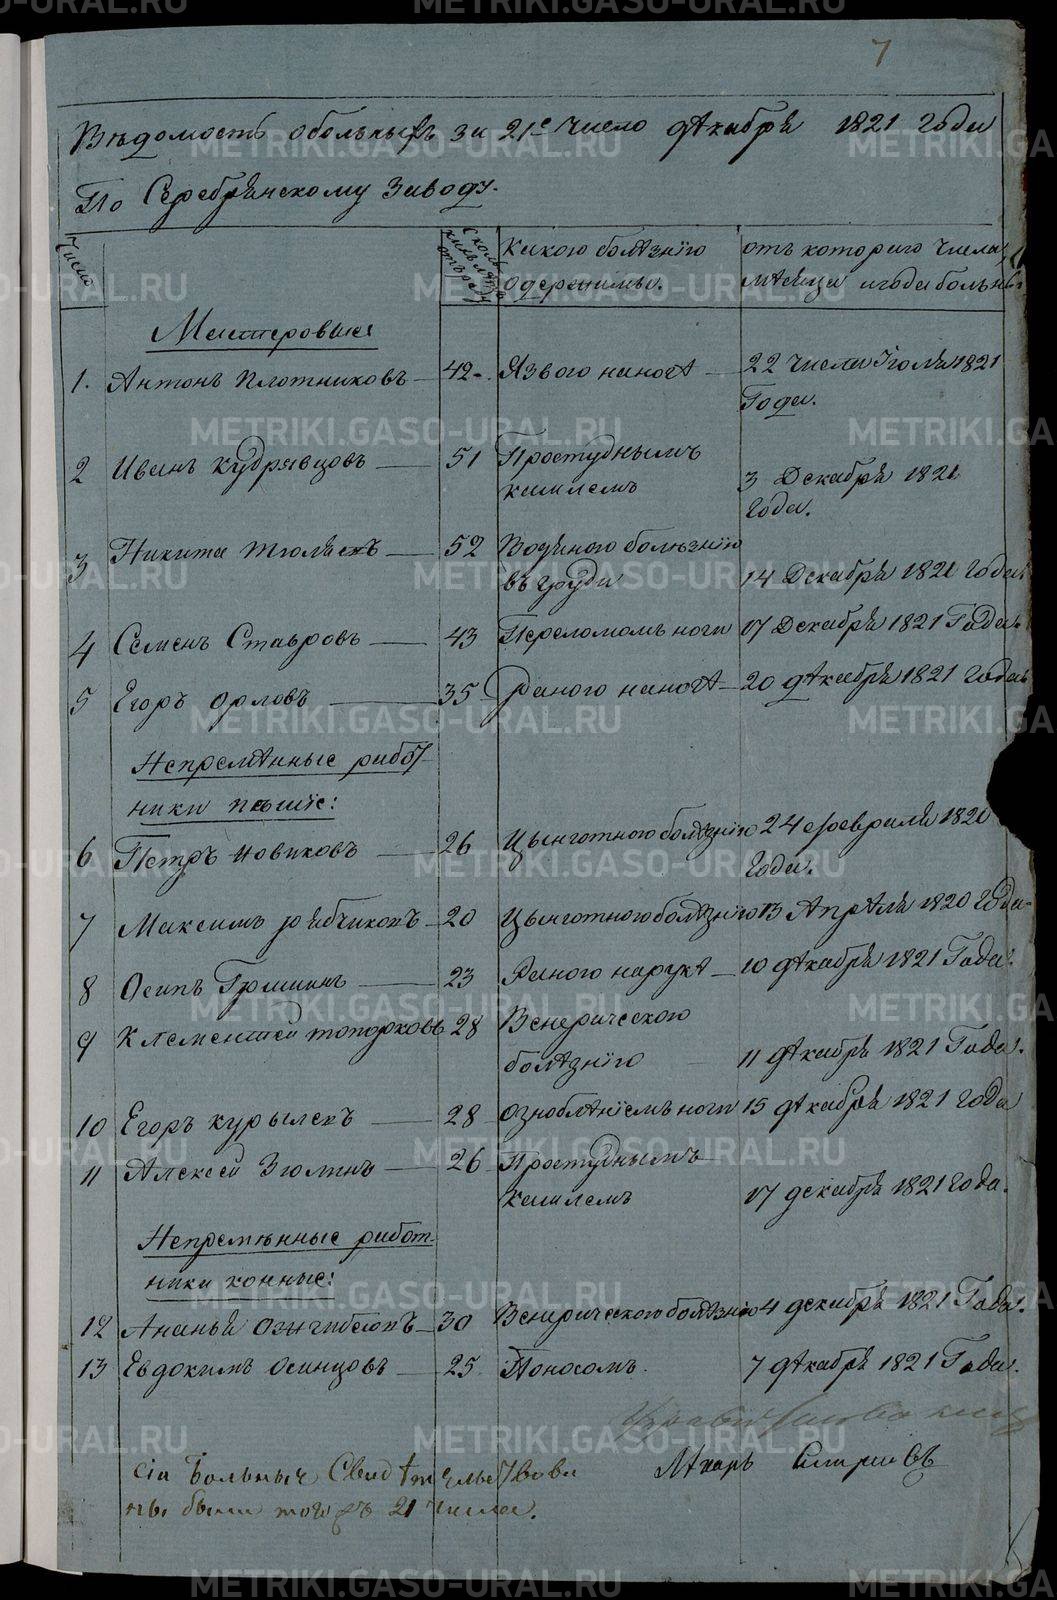 7
Вѣдомость обольныхъ за 21е число декабря 1821 года
По Серебрянскому Заводу.
Число
Сколь кихъ лѣтъ отъ роду
Какою болѣзнiю одержимы.
отъ котораго числа, мѣсяца и года больны
Мастеровые
1. Антонъ Плотниковъ — 42 — Язвою наногѣ — 22 числа Iюля 1821
Года.
2 Иванъ Кудрявцовъ — 51 Простуднымъ
кашлемъ 3 Декабря 1821
Года.
3 Никита — 52 Водяною болѣзнiю
въ груди 14 Декабря 1821 года
4 Семенъ Ставровъ — 43 Переломомъ ноги 17 Декабря 1821 Года.
5 Егоръ Орловъ — 35 раною наногѣ — 20 декабря 1821 года
Непремѣнные работ
ники пѣшiе:
6 Петръ Новиковъ — 26 Цынготною болѣзнiю 24 февраля 1820
Года.
7 Максимъ рябчиковъ — 20 Цынготною болѣзнiю 13 Апрѣля 1820 Года
8 Осипъ Гришинъ — 23 Раною нарукѣ — 10 декабря 1821 Года.
9 Клементей топорковъ 28 Венерическою
болѣзнiю 11 декабря 1821 Года.
10 Егоръ — 28 ознобленiемъ ноги 15 декабря 1821 года
11 Алексей Зюлинъ — 26 Простуднымъ
кашлемъ 17 декабря 1821 Года.
Непремѣнные работ
ники конные:
12 Ананья — 30 Венерическою болѣзнiю 4 декабря 1821 Года.
13 Евдокимъ Осинцовъ — 25 Поносомъ. 7 декабря 1821 Года.
Лѣкарь
сiи больныи Свидѣтельствова
ны были того жъ 21 числа.
METRIKI.GASO-URAL.RU